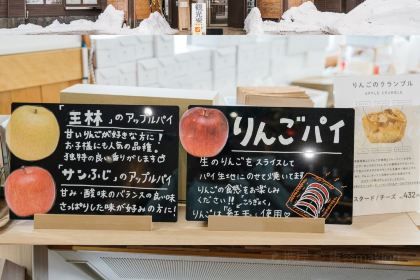 「王林」のアップルパイ
甘いりんごが好きな方に!
お子様にも人気の品種。
独特の良い香りがします
「サンふじ」のアップルパイ
甘み・酸味のバランスの良い味
さっぱりした味が好みの方に!
りんごパイ
生のりんごをスライスして
パイ生地にのせて焼いてます
りんごの食感をお楽しみ
ください!!
こうぎょく
りんごは「紅玉」使用♡
りんごのクランブル
APPLE CRUMBLE
スタード/チーズ
432